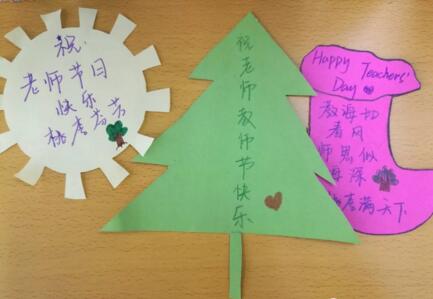 祝.
老师节日
快乐
桃李芬芳
祝老师教师节快乐
Happy Teachers'
Day
教诲如
春风
师恩似
海深
李满天下